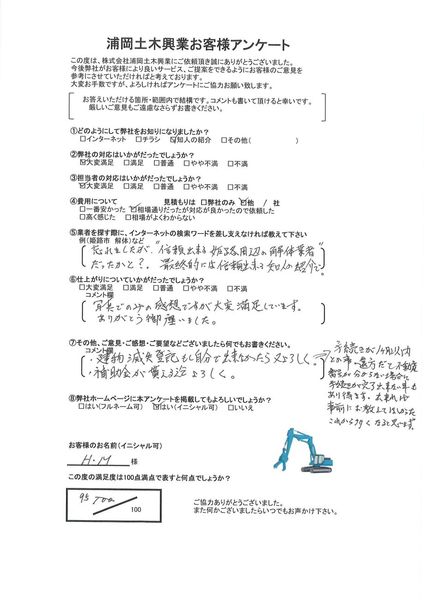 浦岡土木興業お客様アンケート
この度は、株式会社浦岡土木興業にご依頼頂き誠にありがとうございました。
今後弊社がお客様により良いサービス、ご提案をできるようにお客様のご意見を
参考にさせていただければと考えております。
大変お手数ですが、よろしければアンケートにご協力お願い致します。
お答えいただける箇所・範囲内で結構です。コメントも書いて頂けると幸いです。
厳しいご意見もご遠慮なさらずお書きください。
①どのようにして弊社をお知りになりましたか?
□インターネット □チラシ ☑知人の紹介 □その他( )
②弊社の対応はいかがだったでしょうか?
☑大変満足 □満足 □普通 □やや不満 □不満
③担当者の対応はいかがだったでしょうか?
☑大変満足 □満足 □普通 □やや不満 □不満
④費用について 見積もりは □弊社のみ ☑他 / 社
□一番安かった ☑相場通りだったが対応が良かったので依頼した
□高く感じた □相場がよくわからない
⑤業者を探す際に、インターネットの検索ワードを差し支えなければ教えて下さい
例(姫路市 解体)など
忘れましたが、"信頼出来る 姫路周辺の解体業者"
だったかと?。最終的には信頼出来る知人の紹介で。
⑥仕上がりについていかがだったでしょうか?
□大変満足 □満足 □普通 □やや不満 □不満
コメント欄
写真でのみの感想ですが大変満足しています。
ありがとう御座いました。
⑦その他、ご意見・ご感想・ご要望などございましたら何でもお書きください。
コメント欄
・建物滅失登記も自分で出来なかったら又よろしく。
・補助金が貰える迄よろしく。
手続きが1ヶ月以内
との事。遠方だと不動産
番号が分からない場合に
手続きが完了出来ない事も
あり得ます。出来れば
事前にお教えしてほしかった
これから多くなると思います。
⑧弊社ホームページに本アンケートを掲載してもよろしいでしょうか?
□はい(フルネーム可) ☑はい(イニシャル可) □いいえ
お客様のお名前(イニシャル可)
H.M 様
この度の満足度は100点満点で表すと何点でしょうか?
95
100
100
ご協力ありがとうございました。
また何かございましたらいつでもお声がけ下さい。